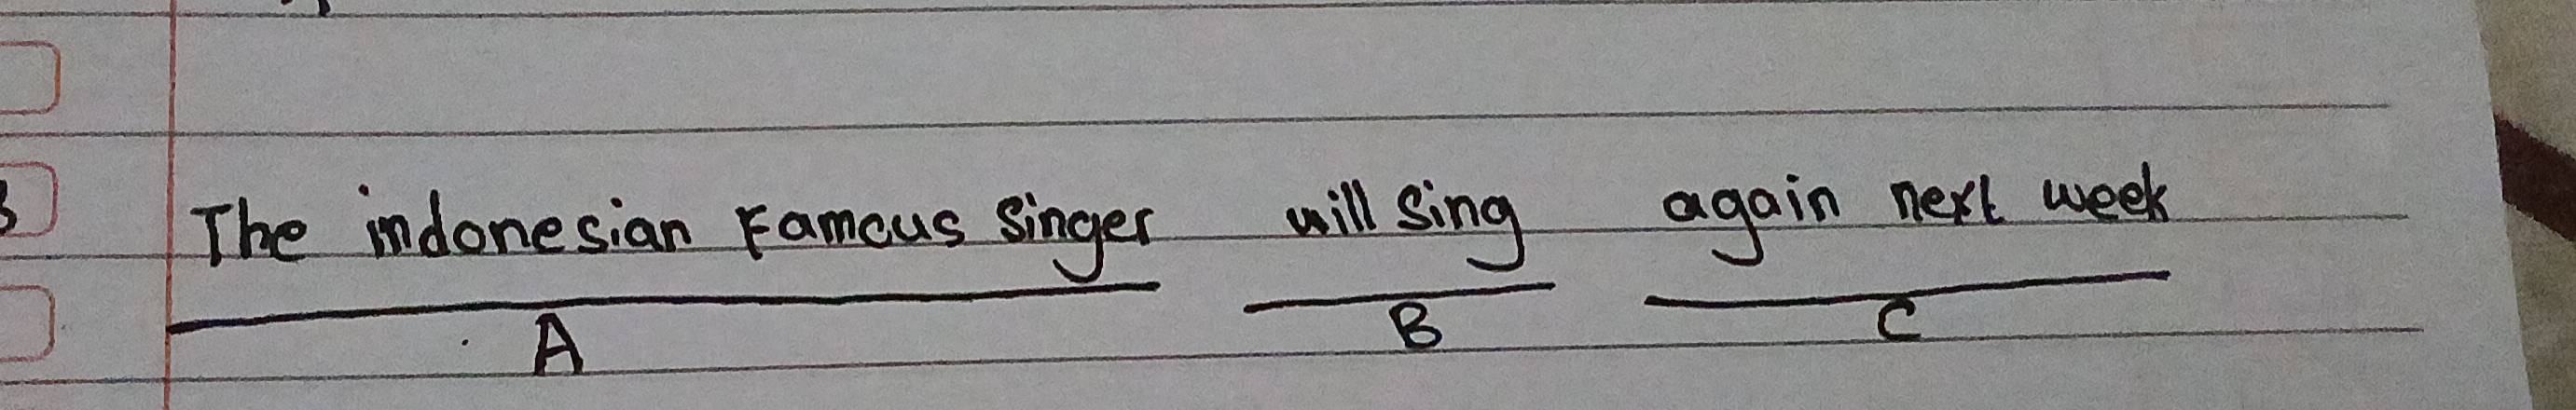 The indonesian Famous Singer will Sing again next week
A B C